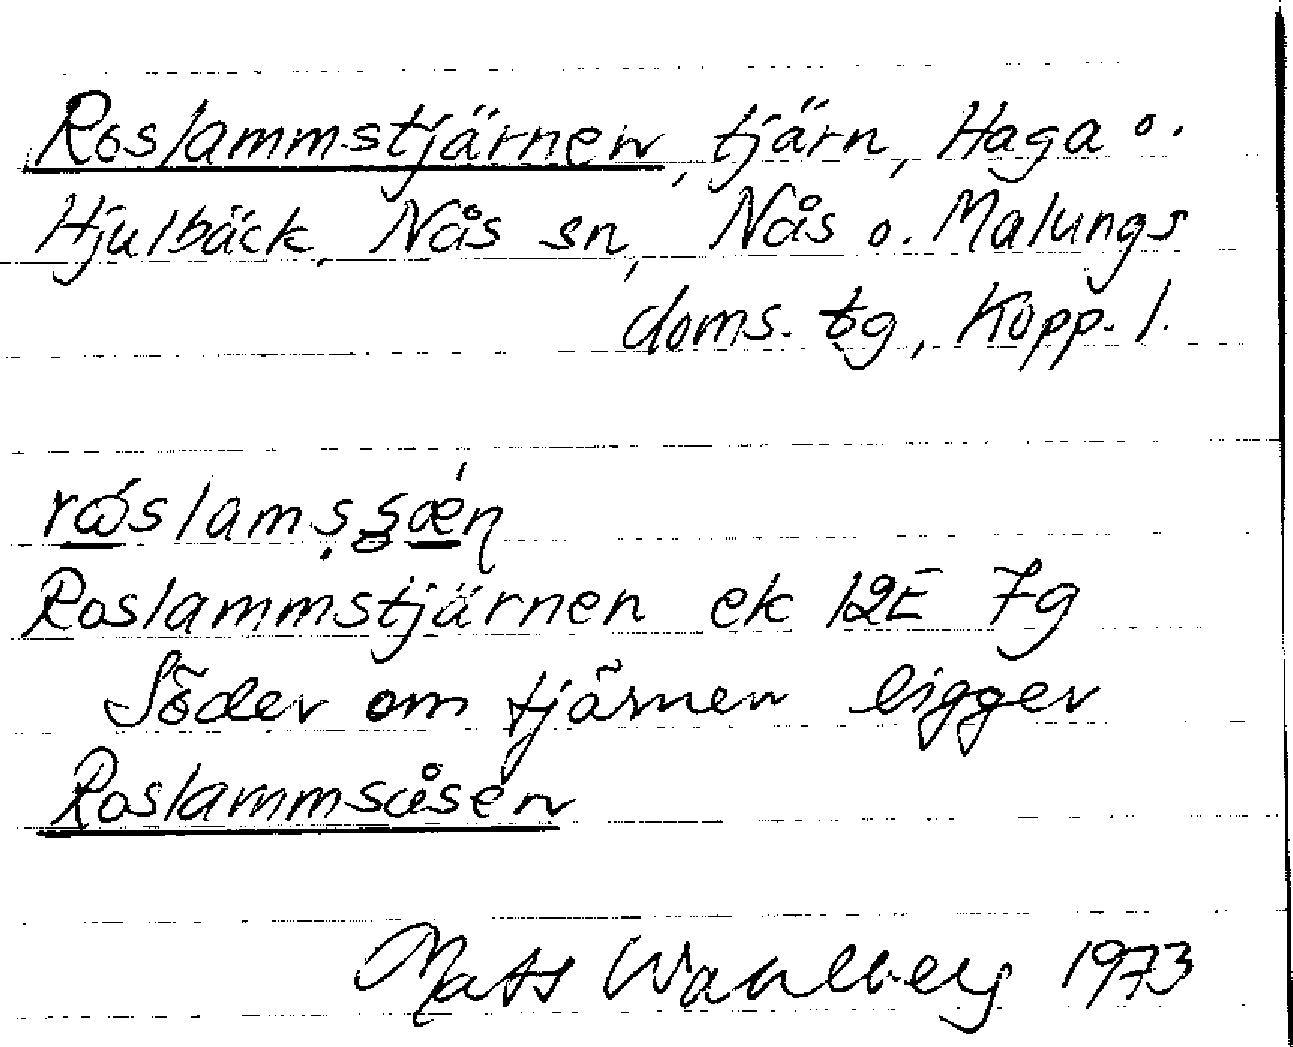 Roslammstjärnen, tjärn, Haga o.
Hjulbäck, Nås sn, Nås o. Malungs
doms. tg, Kopp. l.
Roslammstjärnen ek 12E 7g
Söder om tjärnen ligger
Roslammsåsen
Mats Wahlberg 1973